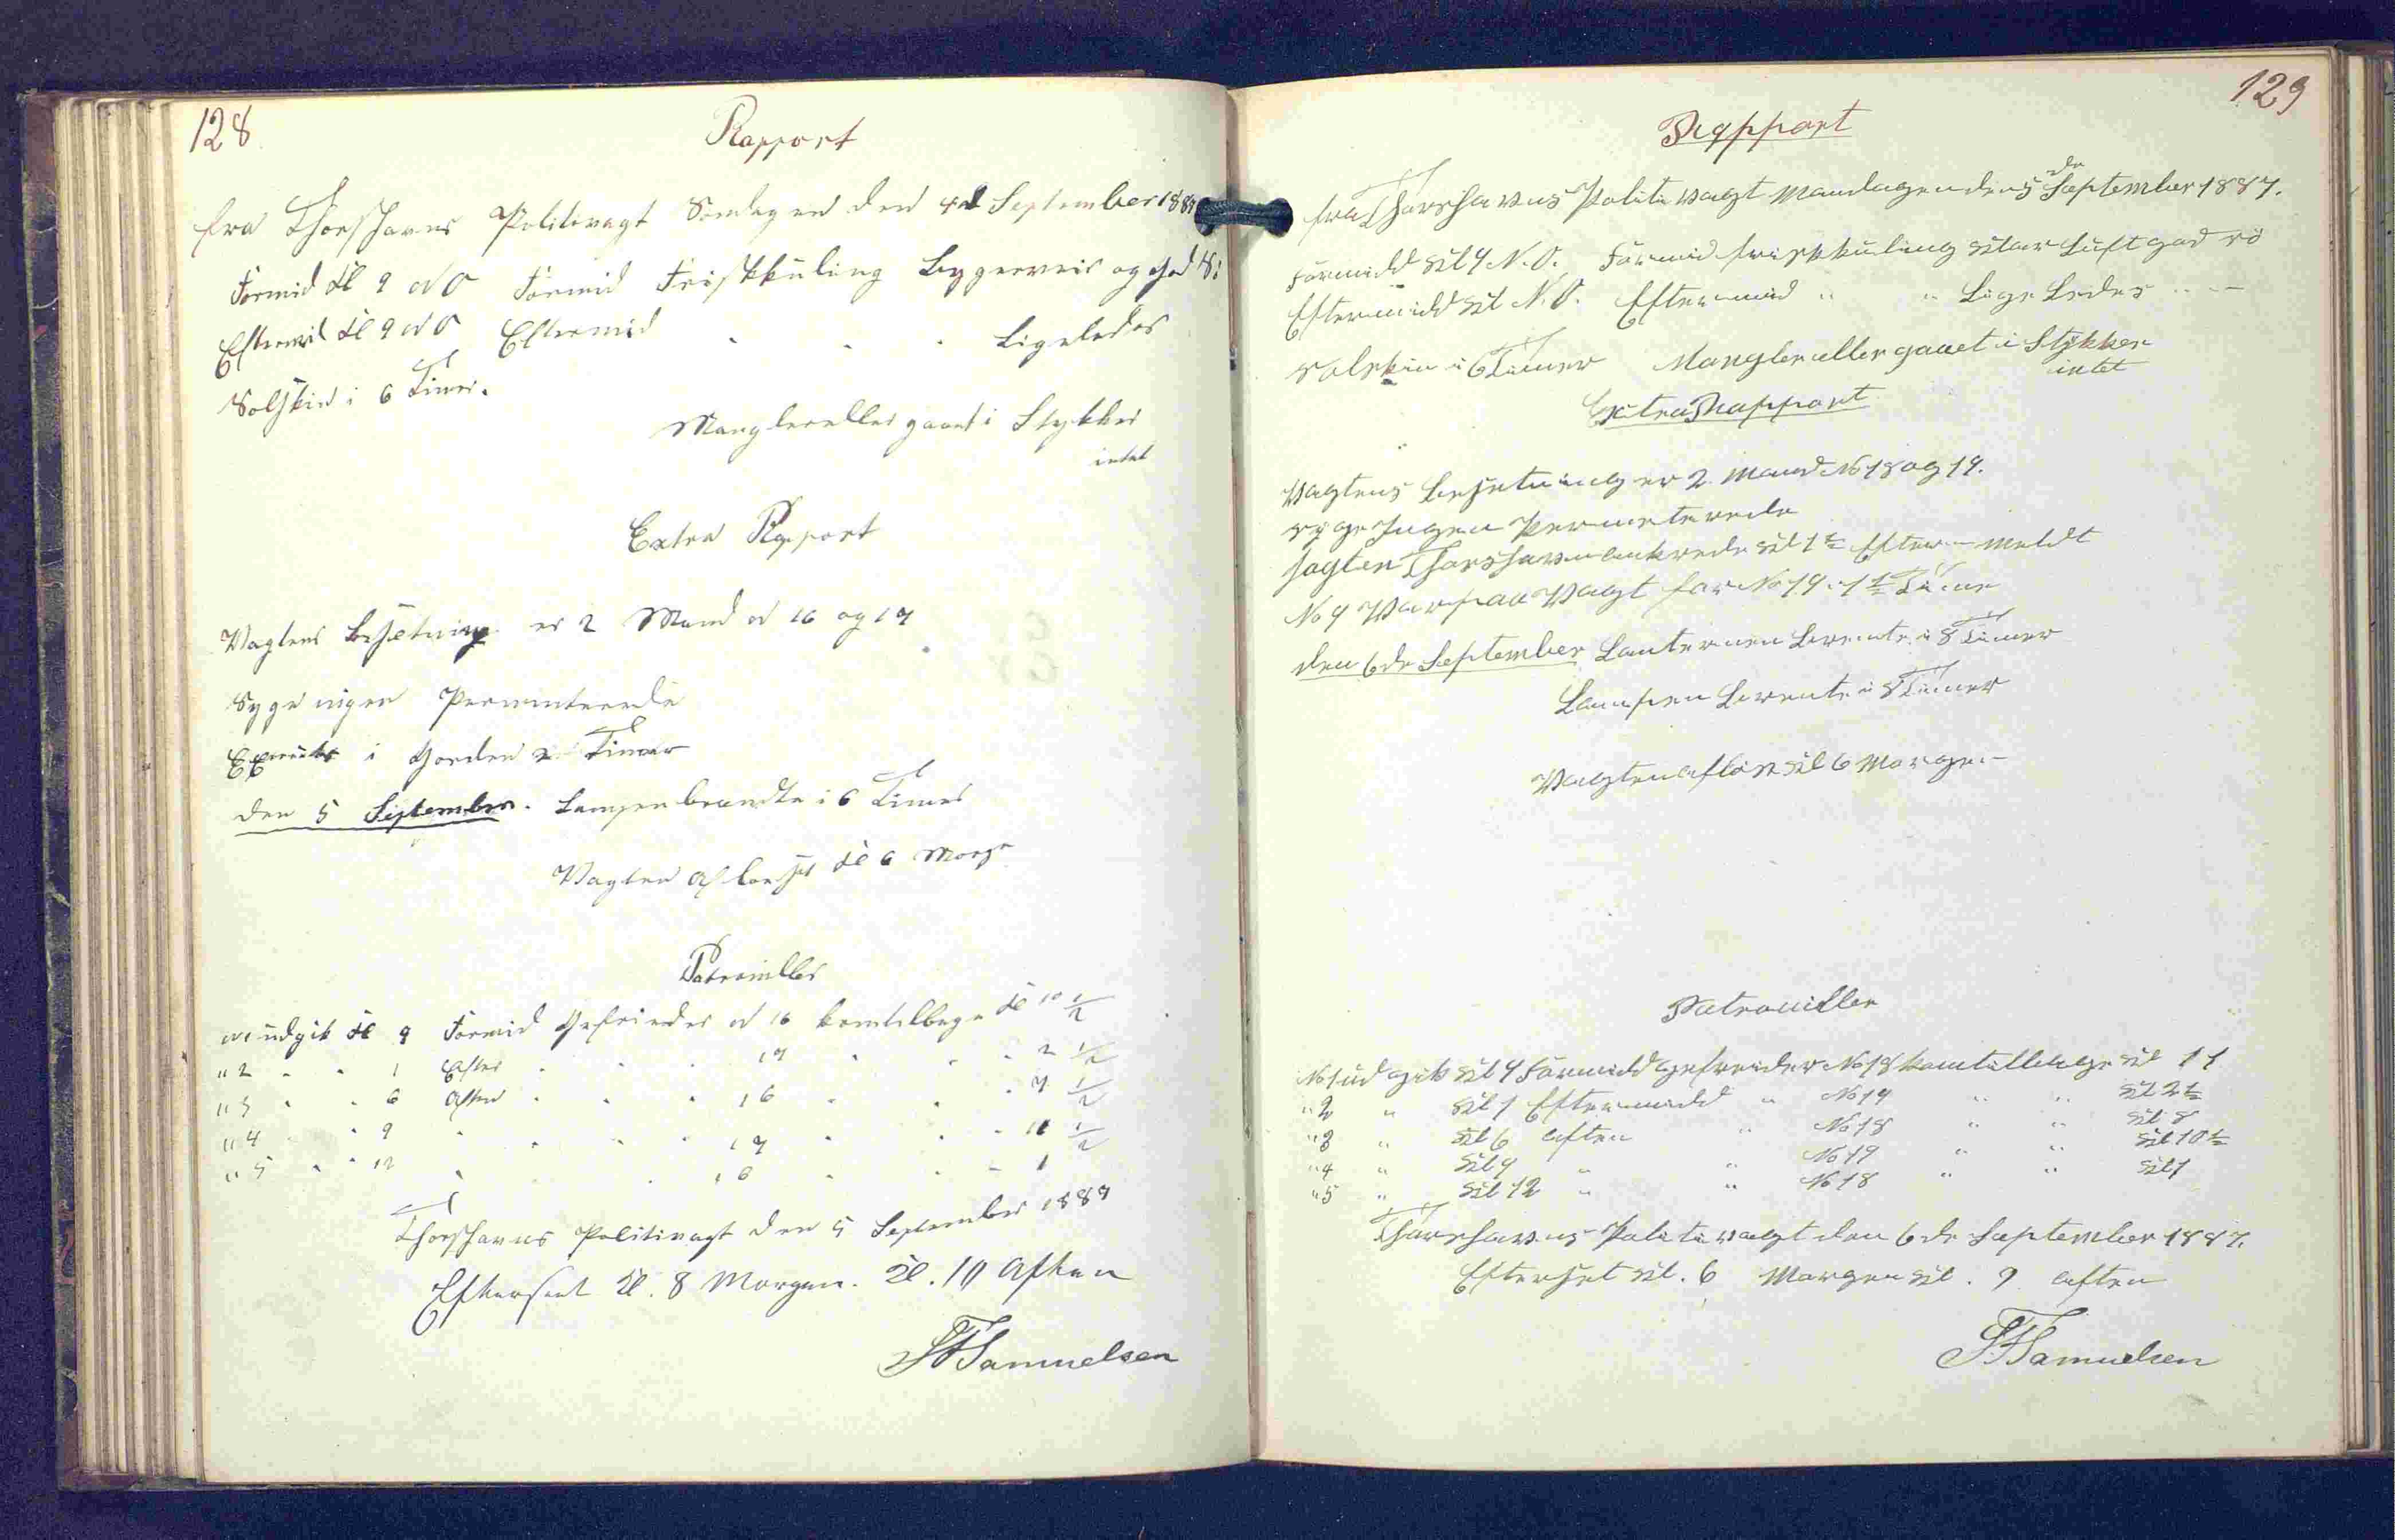 128
Rapport
fra Thorshavns Politivagt Søndagen den 4d September 1887
Formid Kl 9 N O Formid Friskkuling Bygeveir og God Sø
Eftermid Kl 9 N O Eftermid " " " Ligeledes
Solskin i 6 Timer.
Mangler eller gaaet i Stykker
intet
Extra Rapport
Vagtens Besætning er 2 Mand N 16 og 17
Syge ingen Permenterede
Exerserte i Gorden 2 Timer
den 5 September. Lampen brændte i 6 Timer
Vagten Afløsst Kl 6 Morgn
Patrouiller
N1 udgik Kl 9 Formid Gefreider N 16 kom tilbage Kl 10 1/2
" 2 " " 1 Efter " " " 17 " " " 2 1/2
" 3 " " 6 Aften " " " 16 " " " 7 1/2
" 4 " " 9 " " " " 17 " " " 10 1/2
" 5 " " 12 " " 16 " " " 1
Thorshavns Politivagt den 5 September 1887
Efterseet Kl. 8 Morgen. Kl. 10 Aften
Samuelsen
129
Rapport
fra Thorshavns Politivagt Mandagen den 5de September 1887.
Formidd Kl 9 N.O. Formid friskkuling Klar Luft god sø
Eftermidd Kl N.O. Eftermid " " Lige Ledes " —
Solskin i 6 Timer Mangler eller gaaet i Stykker
intet
Extra Rapport
Vagtens Besetning er 2 Mand No 18 og 19.
syge Ingen Permeterede
Jagten Thorshavn ankrede Kl 1 1/2 Efterm meldt
No 9 Var paa Vagt for No 19 i 1 1/2 Time
den 6de September Lanternen Brente i 8 Timer
Lampen Brente i 8 Timer
Vagten afløst Kl 6 Morgen
Patrouiller
No 1 ud gik Kl 9 Formidd gefreider No 18 kom tilbage Kl 11
" 2 " Kl 1 Eftermidd " No 19 " " Kl 2 1/2
" 3 " Kl 6 aften " No 18 " " Kl 8
" 4 " Kl 9 " " No 19 " " Kl 10 1/2
" 5 " Kl 12 " " No 18 " " Kl 1
Thorshavns Politivagt den 6de September 1887.
Efterset Kl. 6 Morgen Kl. 9 aften
Samuelsen